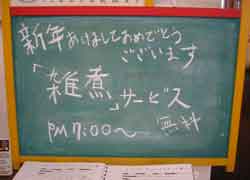 新年あけましておめでとう
ございます
「雑煮」サービス
PM 7:00～ 無料